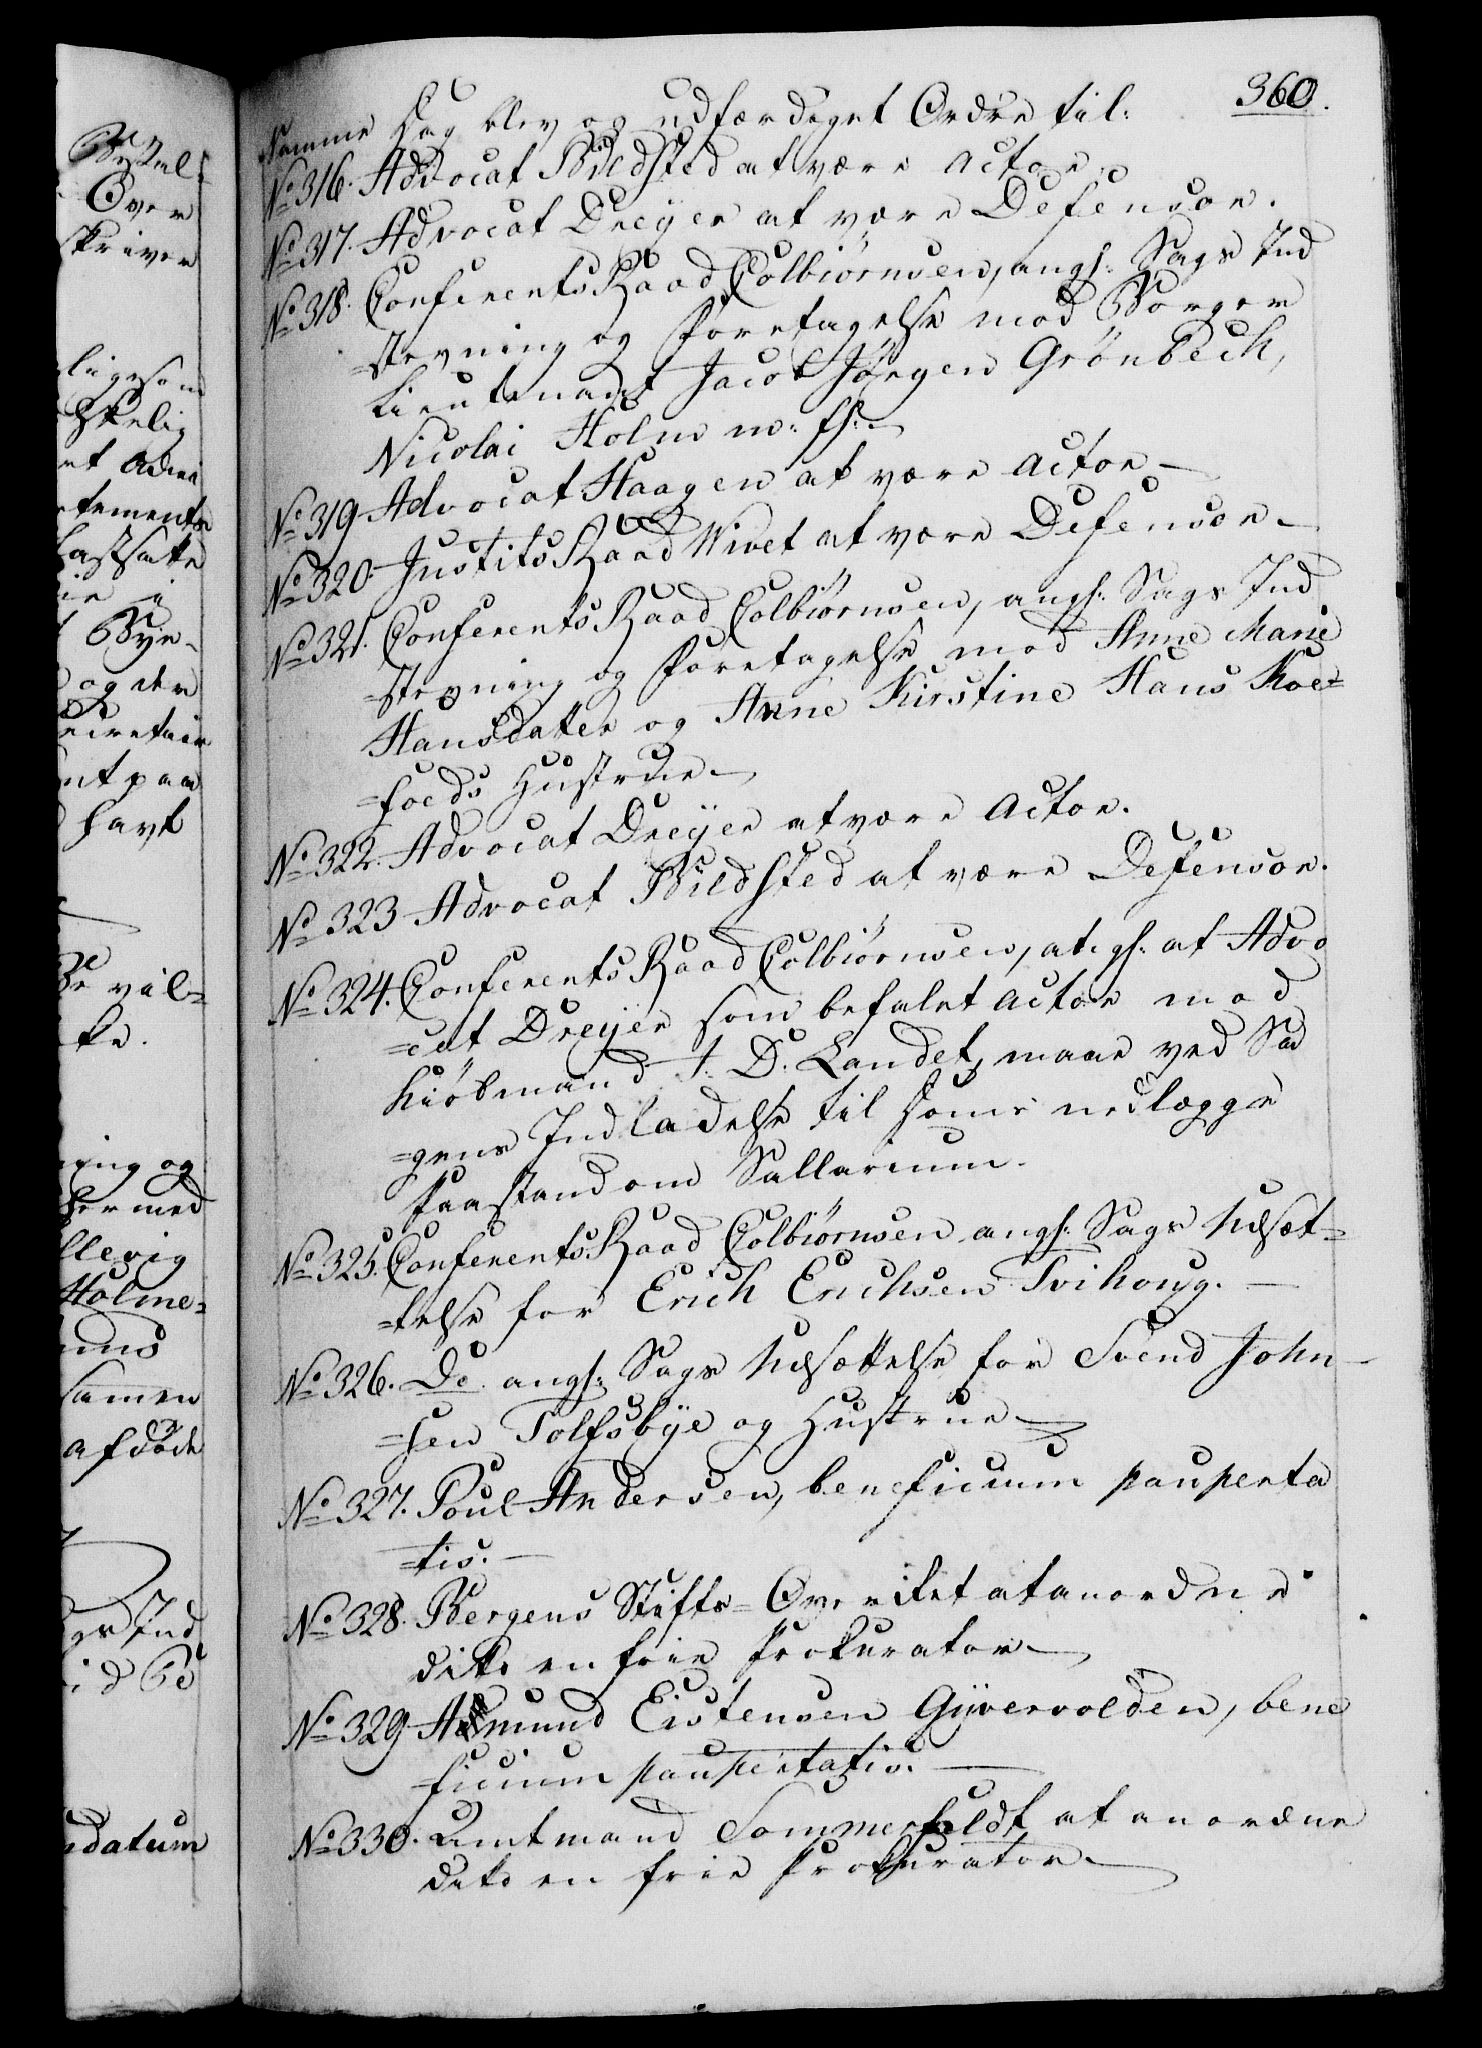 360.
Samme Dag blev og udfærdiget Ordre til:
No 316. Advocat Bildsted at være Actor.
No 317. Advocat Dreyer at være Defensor.
No 318. ConferentsRaad Colbiørnsen, angl: Sags Ind
=stevning og Foretagelse mod Borger
Lieutenant Jacob Jörgen Grönbech,
Nicolai Holm m: fl:
No 319 Advocat Haagen at være Actor
No 320. JustitsRaad Wivet at være Defensor
No 321. ConferentsRaad Colbiørnsen, angl: Sags Ind
=stevning og Foretagelse mod Anne Marie
Hansdatter og Anne Kirstine Hans Koe=
=foeds Hustrue
No 322. Advocat Dreyer at være Actor.
No 323 Advocat Bildsted at være Defensor.
No 324. ConferentsRaad Colbiørnsen, at Advo
=cat Dreyer som befalet Actor mod
Kiöbmand D. Landet, maae ved Sa
=gens Indladelse til Doms nedlægge
Paastand om Sallarium.
No 325. ConferentsRaad Colbiørnsen angl: Sags Udsæt=
=telse for Erich Erichsen Tvihoug.
No 326. Do angl: Sags Udsættelse for Svend John
=sen Tolfsbye og Hustrue
No 327. Poul Andersen, beneficium pauperta
=tis.
No 328. Bergens Stifts=Øvrighet at anordne
dito en frie Prokurator
No 329. Asmund Eistensen Gijvervolden, bene
=ficium paupertatis.
No 330. Amtmand Sommerfeldt at anordne
dito en frie Prokurator